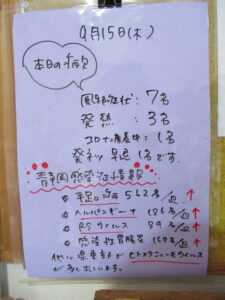 9月15日(木)
本日の病欠
風邪症状: 7名
発熱: 3名
コロナ療養中: 1名
発ネツ 早退 1名です.
静岡感染症情報
手足口病 562名/週 ↑
ヘルパンギーナ 186名/週 ↑
RSウイルス 89名/週 ↑
感染性胃腸炎 169名/週 ↑
他に県東部でヒトメタニューモウイルス
が多く出ています。